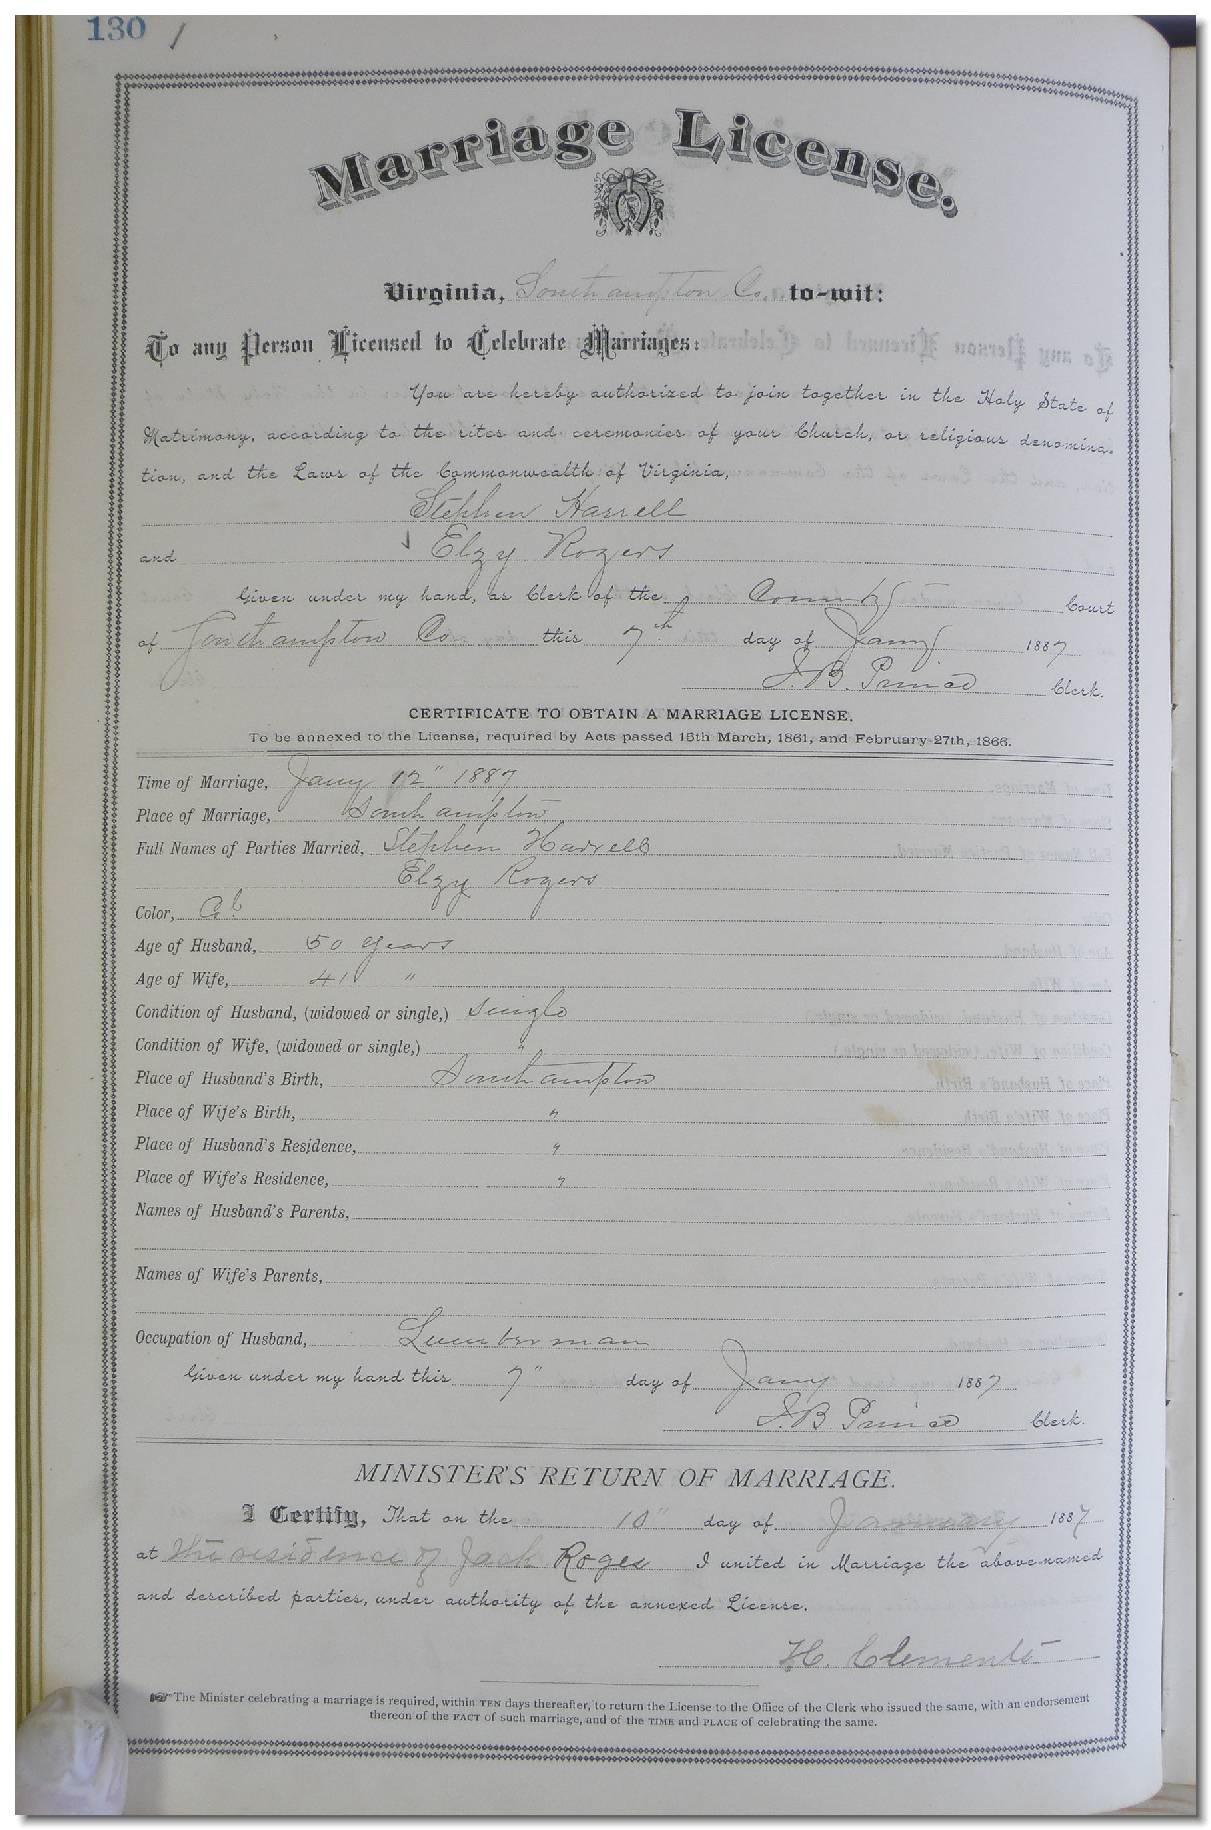 130 /
Marriage License.
Virginia, Southampton Co. to-wit:
To any Person Licensed to Celebrate Marriages:
You are hereby authorized to join together in the Holy State of
Matrimony, according to the rites and ceremonies of your Church, or religious denomina-
tion, and the Laws of the Commonwealth of Virginia,
Stephen Harrell
and Elzy Rogers
Given under my hand, as Clerk of the County Court
of Southampton Co this 7th day of Jany 1887
J. B. Prince Clerk.
CERTIFICATE TO OBTAIN A MARRIAGE LICENSE.
To be annexed to the License, required by Acts passed 15th March, 1861, and February 27th, 1866.
Time of Marriage, Jany 12" 1887
Place of Marriage, Southampton
Full Names of Parties Married, Stephen Harrell
Elzy Rogers
Color, Cd
Age of Husband, 50 years
Age of Wife, 41 "
Condition of Husband, (widowed or single,) Single
Condition of Wife, (widowed or single,) "
Place of Husband's Birth, Southampton
Place of Wife's Birth, "
Place of Husband's Residence, "
Place of Wife's Residence, "
Names of Husband's Parents,
Names of Wife's Parents,
Occupation of Husband, Lumberman
Given under my hand this 7" day of Jany 1887
J. B Prince Clerk.
MINISTER'S RETURN OF MARRIAGE.
I Certify, That on the 10" day of January 1887
at the residence of Jack Roges I united in Marriage the above-named
and described parties, under authority of the annexed License.
H. Clements
☞ The Minister celebrating a marriage is required, within TEN days thereafter, to return the License to the Office of the Clerk who issued the same, with an endorsement
thereon of the FACT of such marriage, and of the TIME and PLACE of celebrating the same.